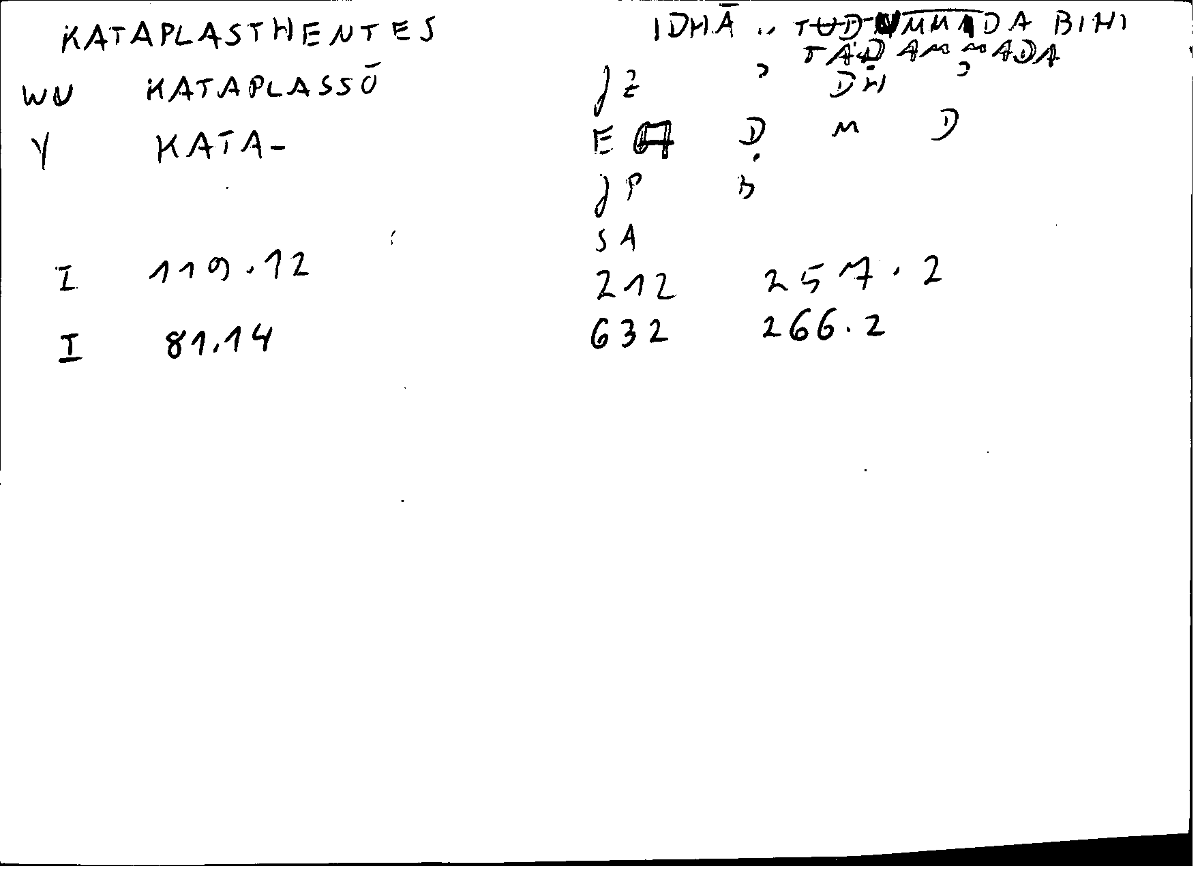 KATAPLASTHENTES
WU KATAPLASSŌ
Y KATA-
I 119.12
I 81.14
IDHĀ .. BIHI
TAḌAMMADA
JZ ʾ DH ʾ
E Ḍ M D
JP B
SA
212 257.2
632 266.2